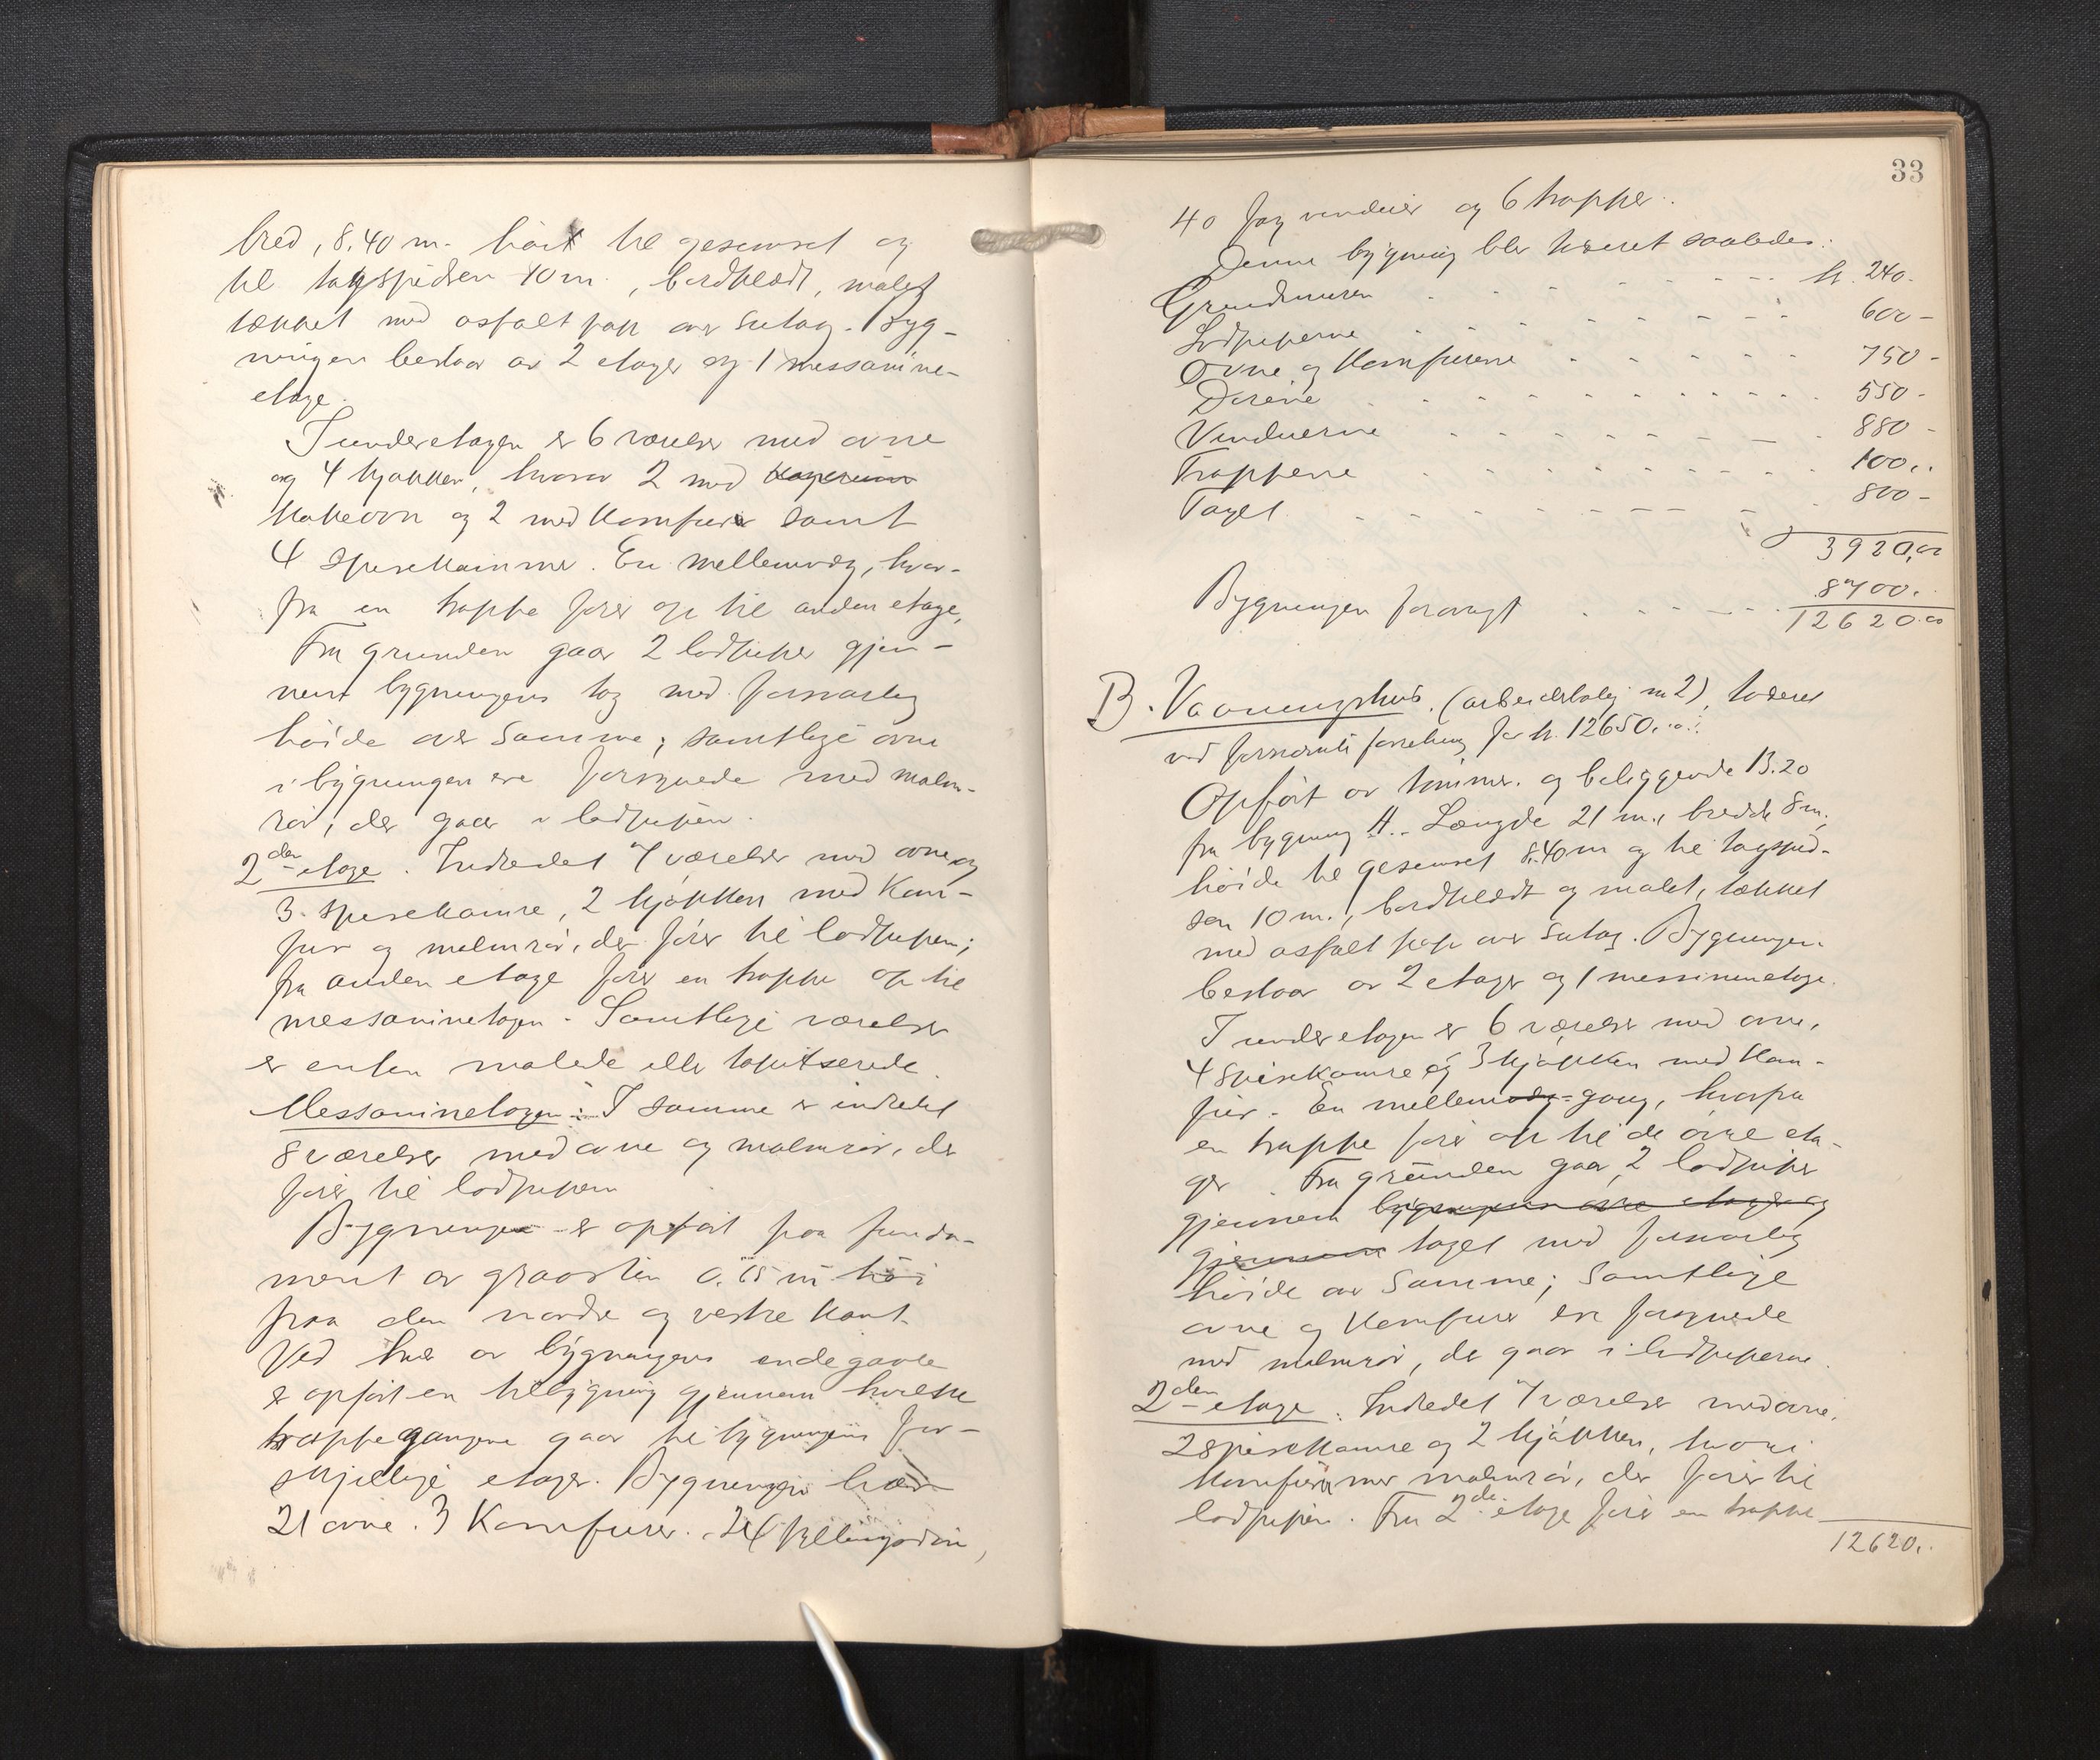 bred, 8.40 m. høit til gesemset og
til tagspidsen 10 m., bordklædt, malet
tækket med asfaltpap over sutag. Byg-
ningen bestaar av 2 etager og 1 messanine-
etage.
I underetagen er 6 værelser med ovne
og 4 kjøkken, hvorav 2 med
kokeovn og 2 med komfurer samt
4 spisekammer. En mellemvæg, hvor-
fra en trappe fører op til anden etage,
Fra grunden gaar 2 lodpiper gjen-
nem bygningens tag med forsvarlig
høide over samme; samtlige ovne
i bygningen ere forsynede med malm-
rør, der gaar i lodpipen.
2den etage. Indredet 7 værelser med ovne og
3 spisekamre, 2 kjøkken med kom-
fur og malmrør, der fører til lodpipen;
fra anden etage fører en trappe op til
messaninetagen. Samtlige værelser
er enten malede eller tapitserede.
Messaninetagen: I samme er indredet
8 værelser med ovne og malmrør, der
fører til lodpipen
Bygningen er opført paa funda-
ment av graasten 0.75 m høi
paa den nordre og vestre kant.
Ved hver av bygningens endegavle
er opført en tilbygning gjennem hvilke
trappegangene gaar til bygningens for-
skjellige etager. Bygningen har
21 ovne. 3 Komfurer. 24 fyllingsdøre,
33
40 fag vinduer og 6 trapper.
Denne bygning blev taxeret saaledes:
Grundmuren kr. 240.-
Lodpiperne 600-
Ovne og Komfurerne 750-
Dørene 550-
Vinduerne 880-
Trapperne 100..
Taget 800-
3920,00
Bygningen forøvrigt 8700..
12620.00
B. Vaaningshus. (arbeiderbolig nr 2), taxeres
ved forsvarlig for kr. 12650.00.
Opført av tømmer. og beliggende 13.20
fra bygning A. Længde 21 m., bredde 8 m.,
høide til gesemset 8.40 m og til tagspid-
sen 10 m., bordklædt og malet, tækket
med asfalt pap over sutag. Bygningen
bestaar av 2 etager og 1 messaninetage.
I underetagen er 6 værelser med ovne,
4 spisekamre og 3 kjøkken med kom-
fur. En mellemvæg-gang, hvorfra
en trappe fører op til de øvre eta-
ger. Fra grunden gaar 2 lodpiper
gjennem bygningens øvre etager og
gjennem taget med forsvarlig
høide over samme; samtlige
ovne og komfurer ere forsynede
med malmrør, der gaar i lodpiperne.
2den etage. Indredet 7 værelser med ovne,
2 spisekamre og 2 kjøkken, hvori
komfurer med malmrør, der fører til
lodpipen. Fra 2de etage fører en trappe
12620..